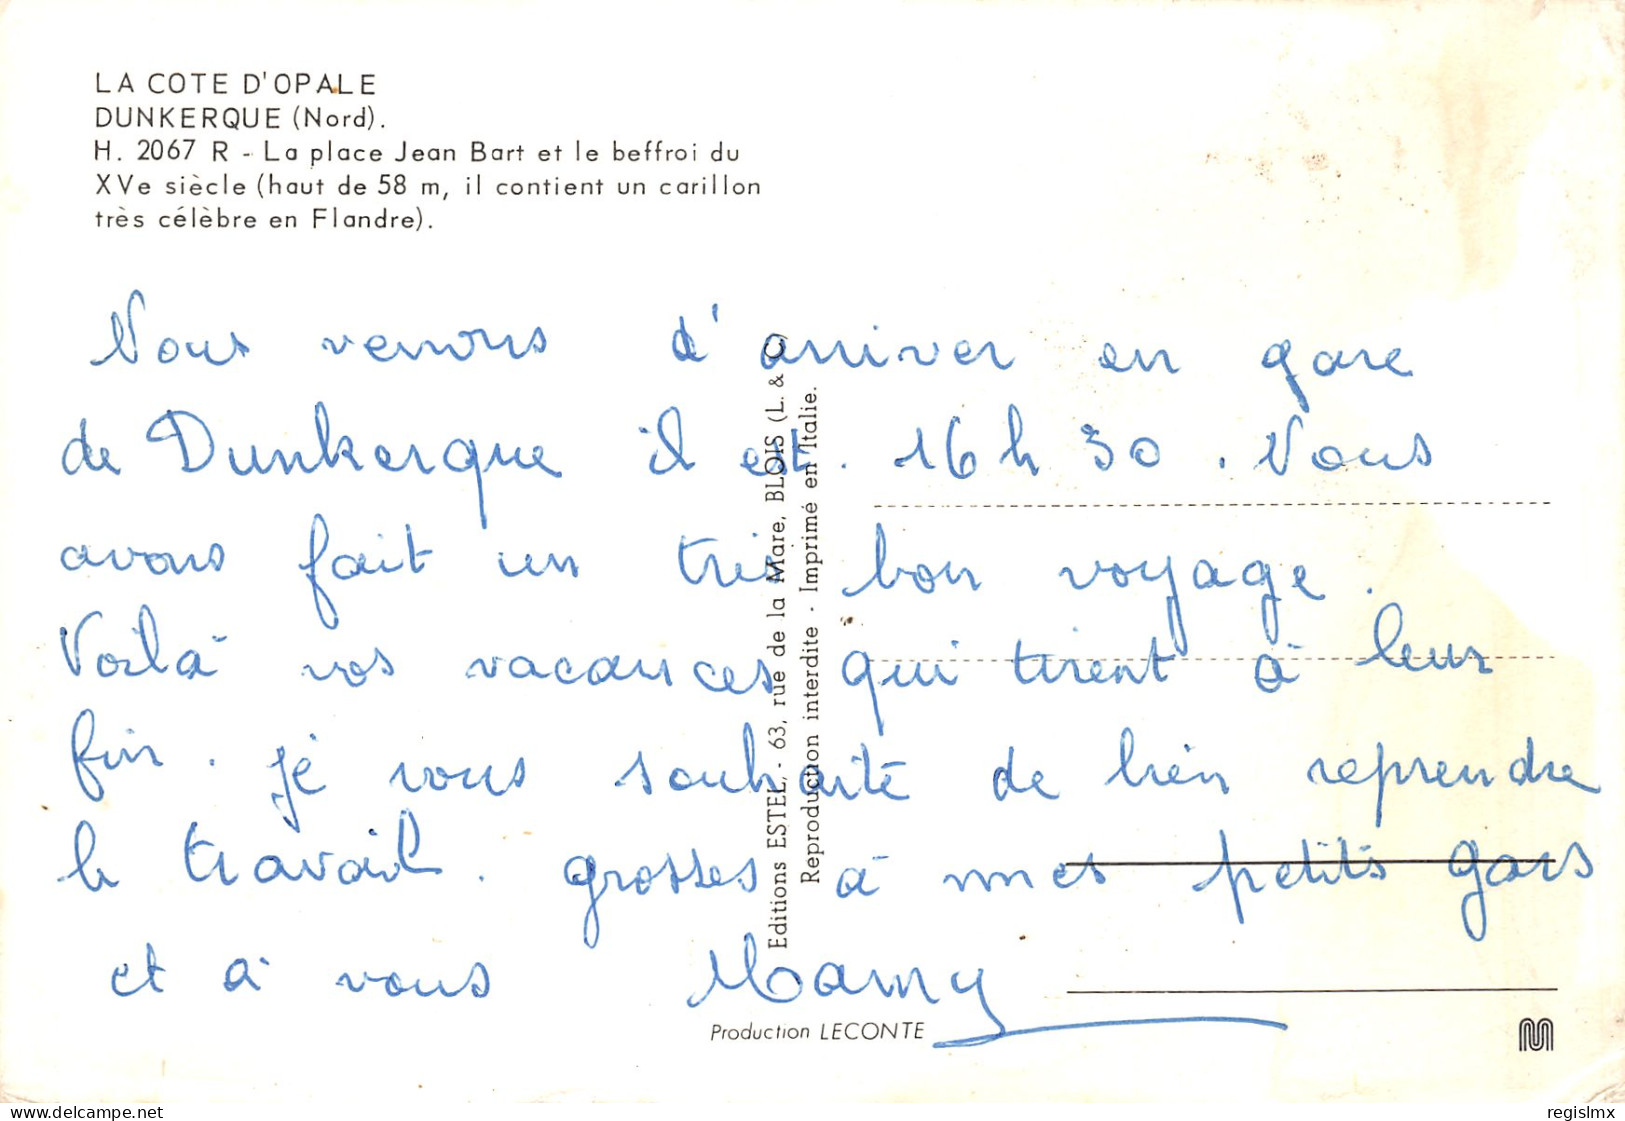 LA COTE D'OPALE
DUNKERQUE (Nord).
H. 2067 R - La place Jean Bart et le beffroi du
XVe siècle (haut de 58 m, il contient un carillon
très célèbre en Flandre).
Nous venons d'arriver en gare
de Dunkerque il est. 16 h 30. Nous
avons fait un très bon voyage.
Voilà vos vacances qui tirent à leur
fin. je vous souhaite de bien reprendre
le travail. grosses à mes petits gars
et à vous Mamy
Editions ESTEL, - 63, rue de la Mare, BLOIS (L. & C)
Reproduction interdite - Imprimé en Italie.
Production LECONTE
www.delcampe.net
regislmx